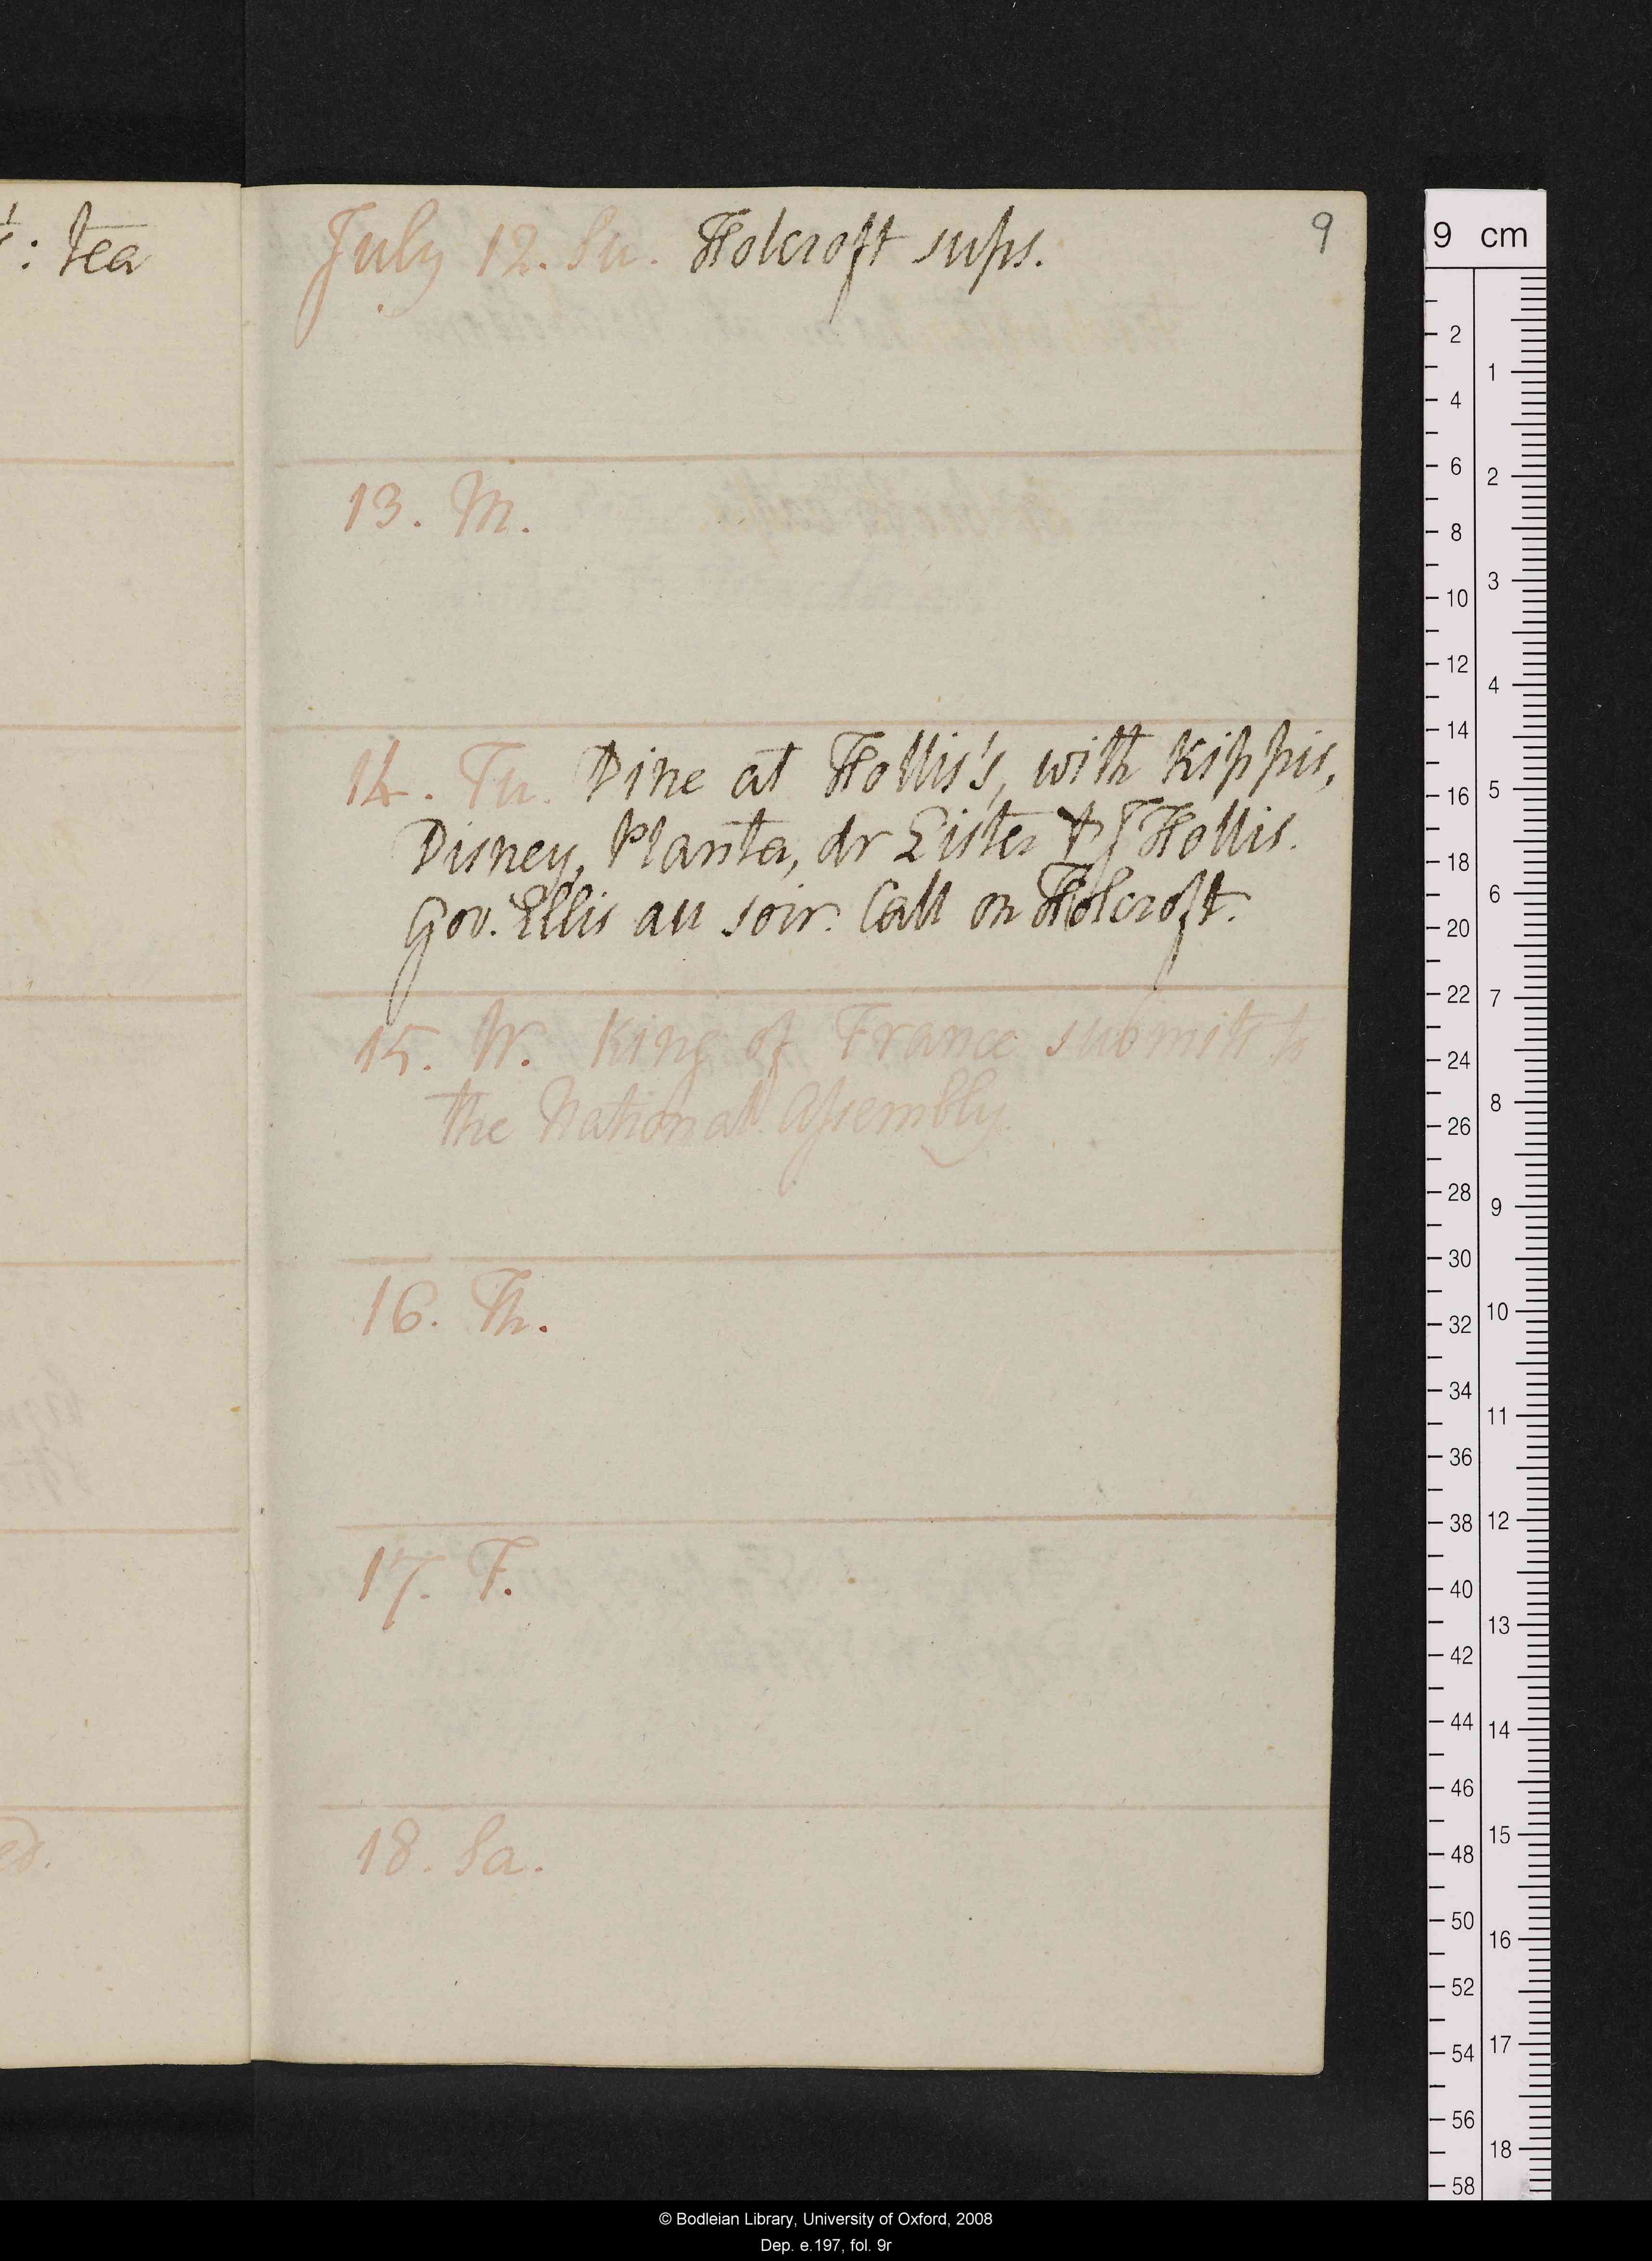 : tea
July 12. Su. Holcroft sups.
9
13. M.
14. Tu. Dine at Hollis's, with Kippis,
Disney, Planta, dr Lister & J Hollis.
Gov. Ellis au soir. Call on Holcroft.
15. W. King of France submits to
the National Assembly.
16. Th.
17. F.
18. Sa.
ed.
9 cm
2
4
6
8
10
12
14
16
18
20
22
24
26
28
30
32
34
36
38
40
42
44
46
48
50
52
54
56
58
1
2
3
4
5
6
7
8
9
10
11
12
13
14
15
16
17
18
© Bodleian Library, University of Oxford, 2008
Dep. e.197, fol. 9r